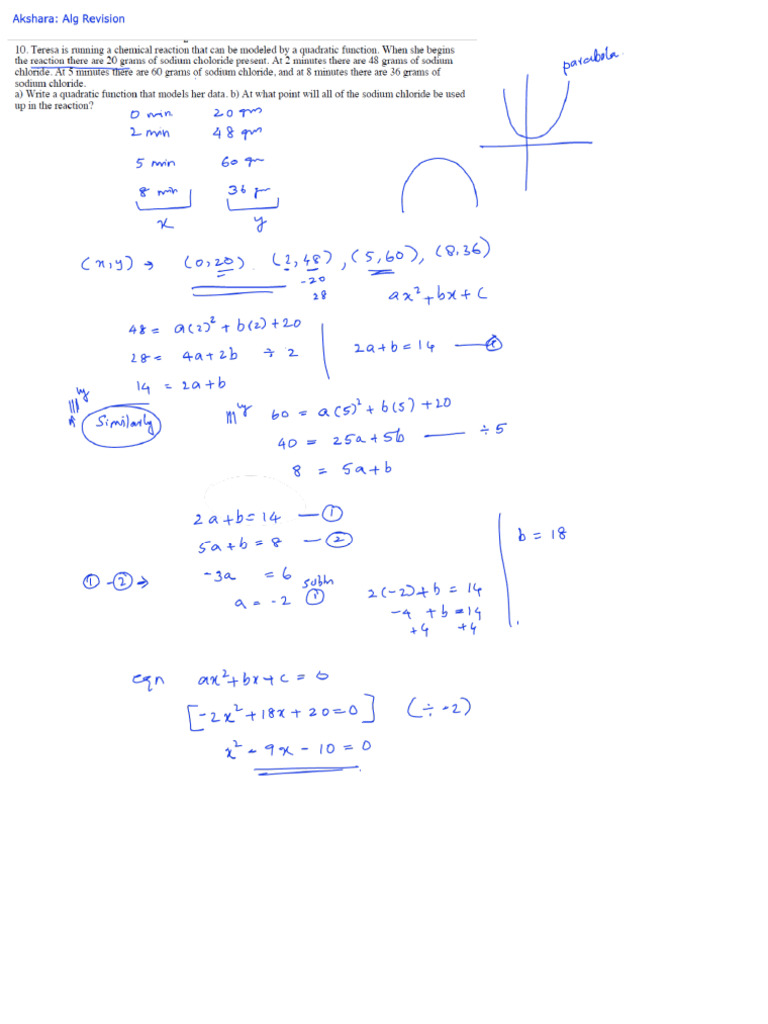 Akshara: Alg Revision
10. Teresa is running a chemical reaction that can be modeled by a quadratic function. When she begins
the reaction there are 20 grams of sodium choloride present. At 2 minutes there are 48 grams of sodium
chloride. At 5 minutes there are 60 grams of sodium chloride, and at 8 minutes there are 36 grams of
sodium chloride.
a) Write a quadratic function that models her data. b) At what point will all of the sodium chloride be used
up in the reaction?
parabola.
0 min 20 gm
2 min 48 gm
5 min 60 gm
8 min 36 gm
x y
(x,y) → (0,20). (2,48), (5,60), (8,36)
-20
28
ax² + bx + c
48 = a(2)² + b(2) + 20
28 = 4a + 2b ÷ 2
14 = 2a + b
2a + b = 14
Similarly
60 = a(5)² + b(5) + 20
40 = 25a + 5b ÷5
8 = 5a + b
2a + b = 14 — ①
5a + b = 8 — ②
① - ② →
-3a = 6
a = -2
①
2(-2) + b = 14
-4 + b = 14
+4 +4
b = 18
eqn ax² + bx + c = 0
[-2x² + 18x + 20 = 0] (÷ -2)
x² - 9x - 10 = 0